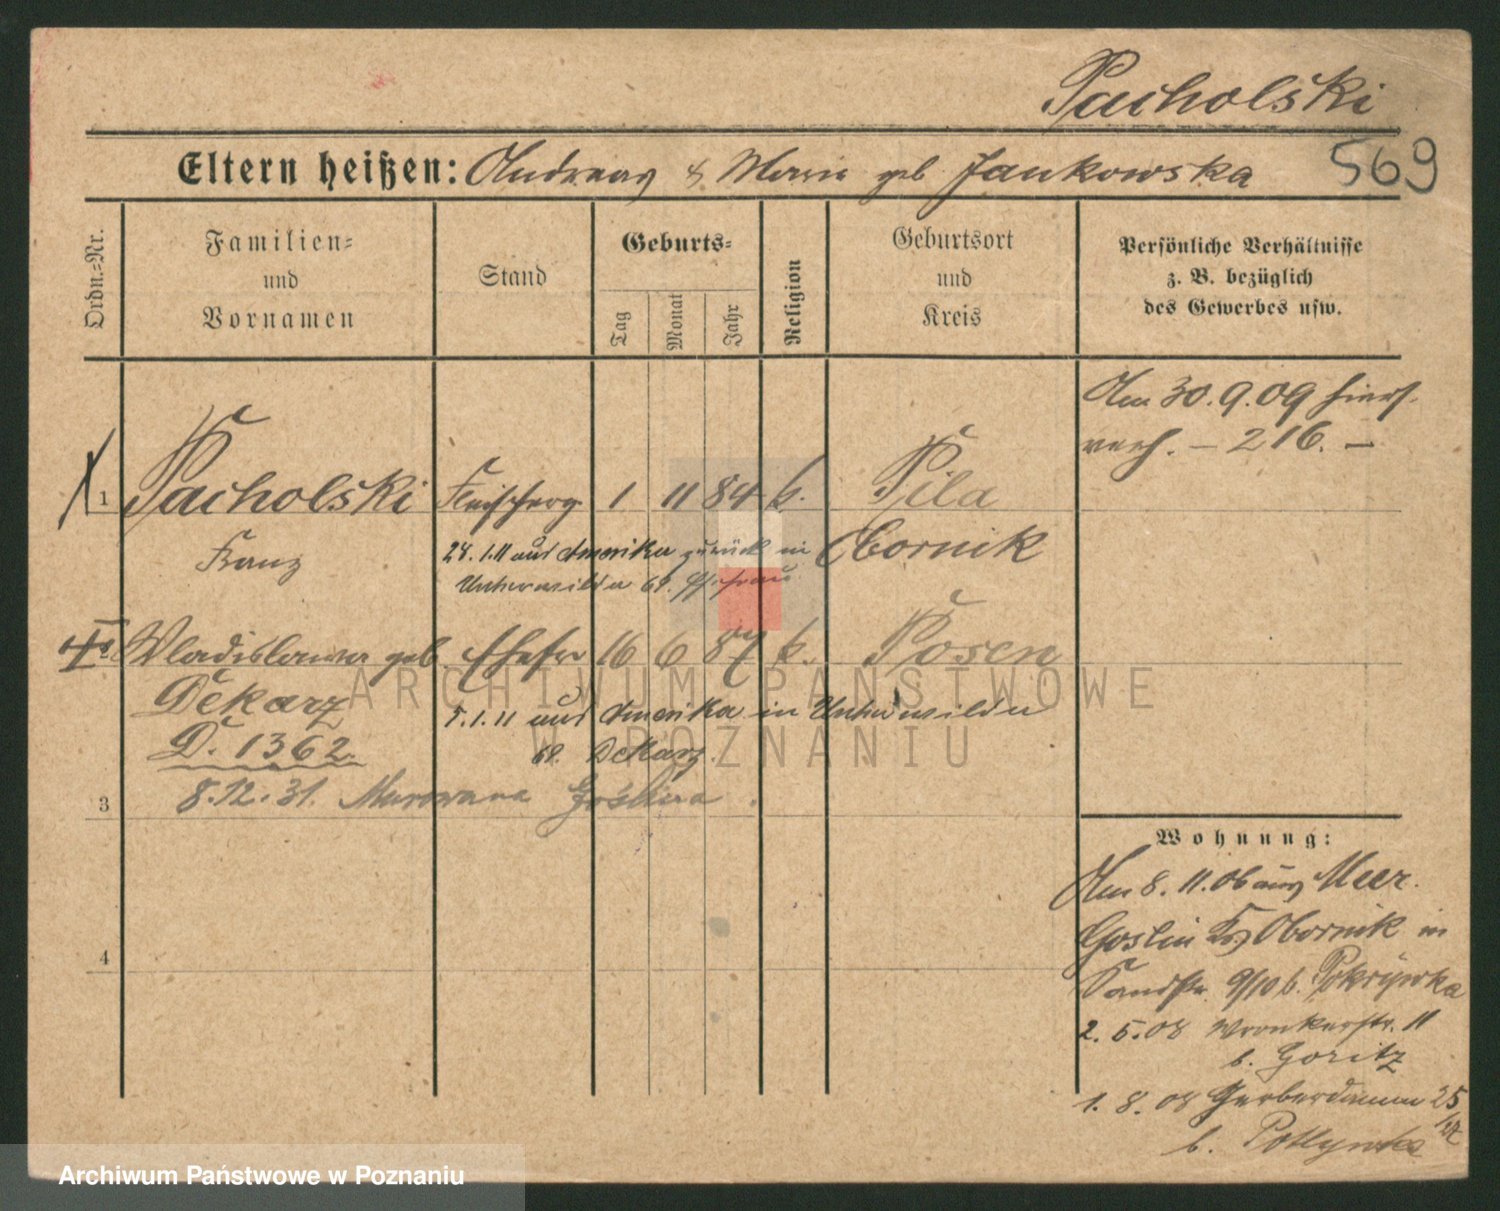 Pacholski
Eltern heißen: Andreas & Marie geb Jankowska
569
Ordn.=Nr.
Familien=
und
Vornamen
Stand
Geburts=
Tag
Monat
Jahr
Religion
Geburtsort
und
Kreis
Persönliche Verhältnisse
z. B. bezüglich
des Gewerbes usw.
Am 30.9.09 hiers.
verh. – 216. –
1 Pacholski Fleischerg. 1 11 84 k. Pila
Franz
Obornik
28.1.11 aus Amerika zurück in
Unterwilda 69. Ehefrau
Wladislawa geb. Ehefr 16 6 87 k. Posen
Dekarz
5.1.11 aus Amerika in Unterwilda
D. 1362.
69. Dekarz.
3 8.12.31. Murowana Goślina.
4
Wohnung:
Am 8.11.06 aus Mur.
Goslin Krs Obornik in
Sandstr. 9/10 b. Pokrywka
2.5.08 Wronkerstr. 11
b. Goritz
1.8.08 Gerberdamm 25
b.
ARCHIWUM PAŃSTWOWE
W POZNANIU
Archiwum Państwowe w Poznaniu